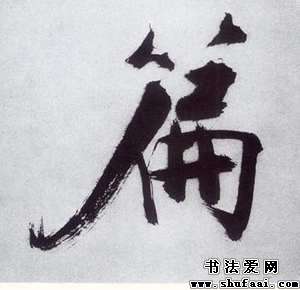 篇
书法爱网
www.shufaai.com